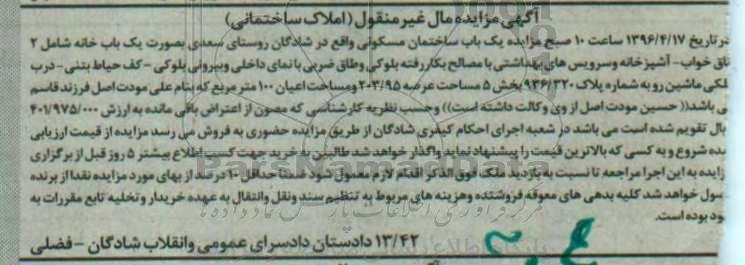 آگهی مزایده مال غیر منقول (املاک ساختمانی)
در تاریخ ۱۳۹۶/۴/۱۷ ساعت ۱۰ صبح مزایده یک باب ساختمان مسکونی واقع در شادگان روستای سعدی بصورت یک باب خانه شامل ۲
خواب - آشپزخانه وسرویس های بهداشتی با مصالح بکار رفته بلوکی وطاق ضربی با نمای داخلی وبیرونی بلوکی - کف حیاط بتنی - درب
ماشین رو به شماره پلاک ۹۳۶/۳۲۰ بخش ۵ مساحت عرصه ۲۰۳/۹۵ ومساحت اعیان ۱۰۰ متر مربع که بنام علی مودت اصل فرزند قاسم
می باشد(( حسین مودت اصل از وی وکالت داشته است)) وحسب نظریه کارشناسی که مصون از اعتراض باقی مانده به ارزش ۴۰۱/۹۷۵/۰۰۰
تقویم شده است می باشد در شعبه اجرای احکام کیفری شادگان از طریق مزایده حضوری به فروش می رسد مزایده از قیمت ارزیابی
شده شروع و به کسی که بالاترین قیمت را پیشنهاد نماید واگذار خواهد شد طالبین به خرید جهت کسب اطلاع بیشتر ۵ روز قبل از برگزاری
مزایده به این اجرا مراجعه تا نسبت به بازدید ملک فوق الذکر اقدام لازم معمول شود ضمنا حداقل ۱۰ درصد از بهای مورد مزایده نقدا از برنده
وصول خواهد شد کلیه بدهی های معوقه فروشنده وهزینه های مربوط به تنظیم سند ونقل وانتقال به عهده خریدار وتخلیه تابع مقررات به
بوده است.
۱۳/۴۲ دادستان دادسرای عمومی وانقلاب شادگان - فضلی